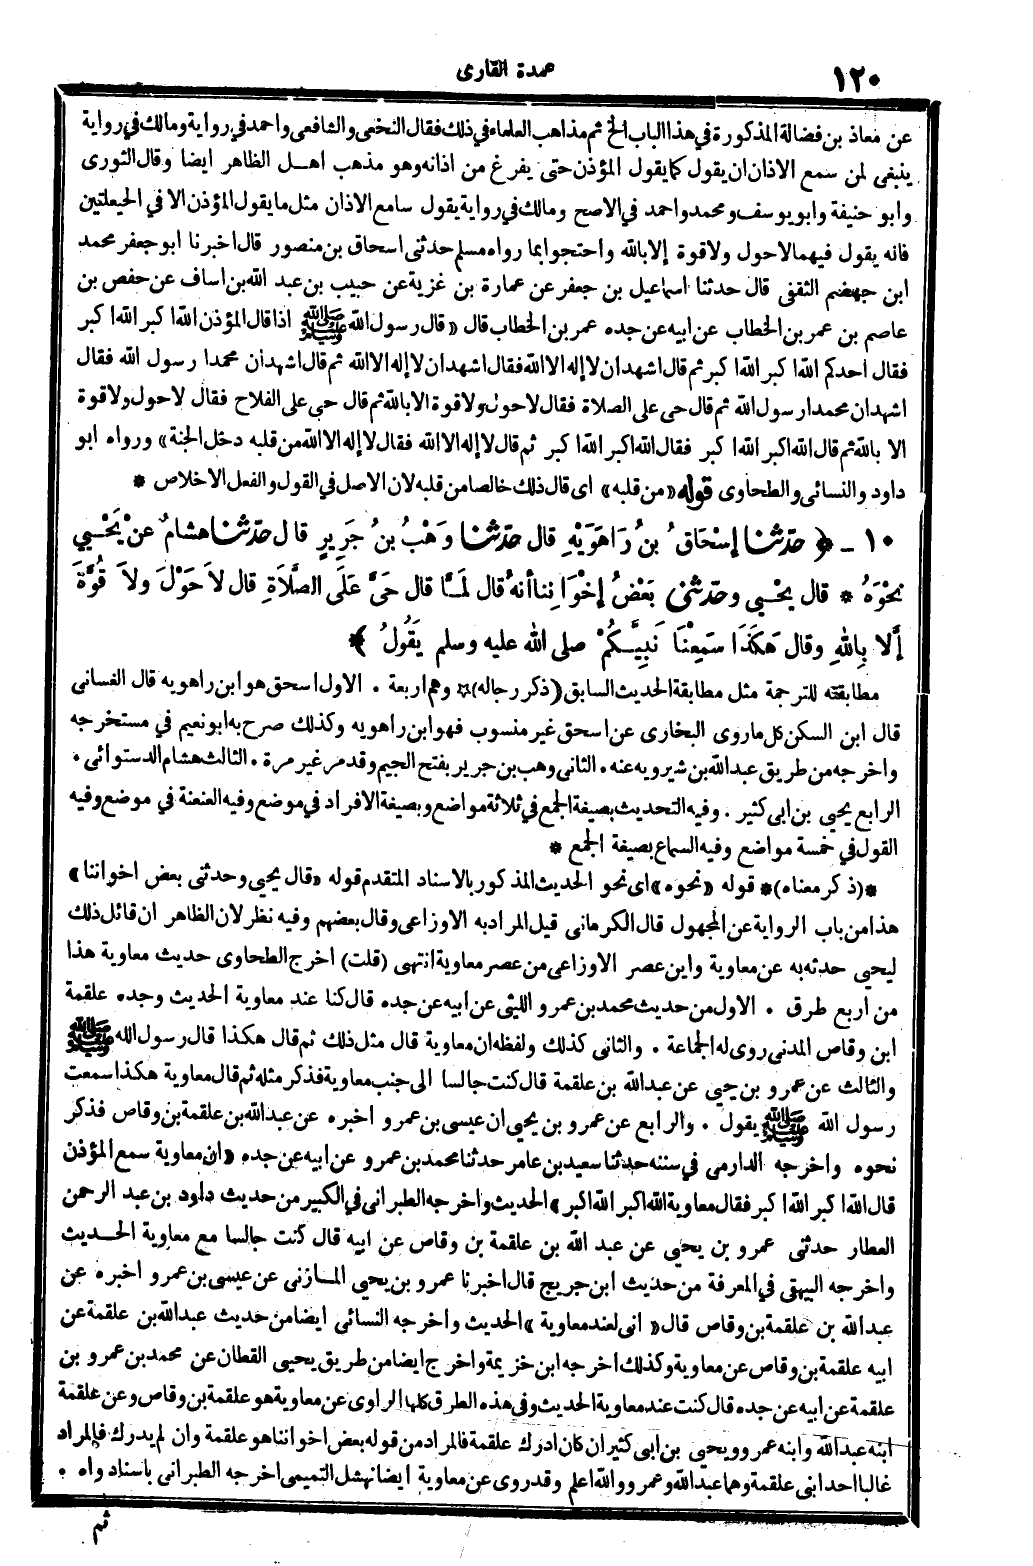 ١٢٠
عمدة القارى
عن معاذ بن فضالة المذكورة في هذا الباب الخ ثم مذاهب العلماء في ذلك فقال النخعى والشافعى واحمد في رواية ومالك في رواية
ينبغى لمن سمع الاذان ان يقول كما يقول المؤذن حتى يفرغ من اذانه وهو مذهب اهل الظاهر ايضا وقال الثورى
وابو حنيفة وابو يوسف ومحمد واحمد في الاصح ومالك في رواية يقول سامع الاذان مثل ما يقول المؤذن الا في الحيعلتين
فانه يقول فيهما لاحول ولاقوة إلا بالله واحتجوا بما رواه مسلم حدثنى اسحاق بن منصور قال اخبرنا ابو جعفر محمد
ابن جهضم الثقفى قال حدثنا اسماعيل بن جعفر عن عمارة بن غزية عن حبيب بن عبد الله بن اساف عن حفص بن
عاصم بن عمر بن الخطاب عن ابيه عن جده عمر بن الخطاب قال « قال رسول الله ﷺ اذا قال المؤذن الله اكبر الله اكبر
فقال احدكم الله اكبر الله اكبر ثم قال اشهد ان لا إله الا الله فقال اشهد ان لا إله الا الله ثم قال اشهد ان محمدا رسول الله فقال
اشهد ان محمدا رسول الله ثم قال حى على الصلاة فقال لاحول ولاقوة الا بالله ثم قال حى على الفلاح فقال لاحول ولاقوة
الا بالله ثم قال الله اكبر الله اكبر فقال الله اكبر الله اكبر ثم قال لا إله الا الله فقال لا إله الا الله من قلبه دخل الجنة» ورواه ابو
داود والنسائى والطحاوى قوله «من قلبه» اى قال ذلك خالصا من قلبه لان الاصل في القول والفعل الاخلاص *
١٠ - ﴿ حَدَّثَنَا إِسْحَاقُ بنُ رَاهَوَيْهِ قال حَدَّثَنَا وَهْبُ بنُ جَرِيرٍ قال حَدَّثَنَا هِشامٌ عنْ يَحْيي
نَحْوَهُ * قال يَحْيي وحَدَّثَنِي بَعْضُ إِخْوَانِنا أنهُ قال لَمَّا قال حَيَّ عَلَى الصَّلَاةِ قال لاَ حَوْلَ ولاَ قُوَّةَ
إلَّا بِاللهِ وقال هَكَذَا سَمِعْنَا نَبِيَّكُمْ صلى الله عليه وسلم يَقُولُ ﴾*
مطابقته للترجمة مثل مطابقة الحديث السابق (ذكر رجاله) وهم اربعة . الاول اسحق هو ابن راهويه قال الغسانى
قال ابن السكن كل ماروى البخارى عن اسحق غير منسوب فهو ابن راهويه وكذلك صرح به ابو نعيم في مستخرجه
واخرجه من طريق عبد الله بن شيرويه عنه . الثانى وهب بن جرير بفتح الجيم وقد مر غير مرة . الثالث هشام الدستوائى .
الرابع يحيى بن ابى كثير . وفيه التحديث بصيغة الجمع في ثلاثة مواضع وبصيغة الافراد في موضع وفيه العنعنة في موضع وفيه
القول في خمسة مواضع وفيه السماع بصيغة الجمع *
*(ذكر معناه)* قوله «نحوه» اى نحو الحديث المذكور بالاسناد المتقدم قوله «قال يحيى وحدثنى بعض اخواننا»
هذا من باب الرواية عن المجهول قال الكرمانى قيل المراد به الاوزاعى وقال بعضهم وفيه نظر لان الظاهر ان قائل ذلك
ليحيى حدثه به عن معاوية واين عصر الاوزاعى من عصر معاوية انتهى (قلت) اخرج الطحاوى حديث معاوية هذا
من اربع طرق . الاول من حديث محمد بن عمرو الليثى عن ابيه عن جده قال كنا عند معاوية الحديث وجده علقمة
ابن وقاص المدنى روى له الجماعة . والثانى كذلك ولفظه ان معاوية قال مثل ذلك ثم قال هكذا قال رسول الله ﷺ
والثالث عن عمرو بن يحيى عن عبد الله بن علقمة قال كنت جالسا الى جنب معاوية فذكر مثله ثم قال معاوية هكذا سمعت
رسول الله ﷺ يقول . والرابع عن عمرو بن يحيى ان عيسى بن عمرو اخبره عن عبد الله بن علقمة بن وقاص فذكر
نحوه واخرجه الدارمى في سننه حدثنا سعيد بن عامر حدثنا محمد بن عمرو عن ابيه عن جده «ان معاوية سمع المؤذن
قال الله اكبر الله اكبر فقال معاوية الله اكبر الله اكبر» الحديث واخرجه الطبرانى في الكبير من حديث داود بن عبد الرحمن
العطار حدثنى عمرو بن يحيى عن عبد الله بن علقمة بن وقاص عن ابيه قال كنت جالسا مع معاوية الحديث
واخرجه البيهقى في المعرفة من حديث ابن جريج قال اخبرنا عمرو بن يحيى المازنى عن عيسى بن عمرو اخبره عن
عبد الله بن علقمة بن وقاص قال « انى لعند معاوية » الحديث واخرجه النسائى ايضا من حديث عبد الله بن علقمة عن
ابيه علقمة بن وقاص عن معاوية وكذلك اخرجه ابن خزيمة واخرج ايضا من طريق يحيى القطان عن محمد بن عمرو بن
علقمة عن ابيه عن جده قال كنت عند معاوية الحديث وفي هذه الطرق كلها الراوى عن معاوية هو علقمة بن وقاص وعن علقمة
ابنه عبد الله وابنه عمرو ويحيى بن ابى كثير ان كان ادرك علقمة فالمراد من قوله بعض اخواننا هو علقمة وان لم يدرك فالمراد
غالبا احد ابنى علقمة وهما عبد الله وعمرو والله اعلم وقد روى عن معاوية ايضا نهشل التميمى اخرجه الطبرانى باسناد واه .
ثم